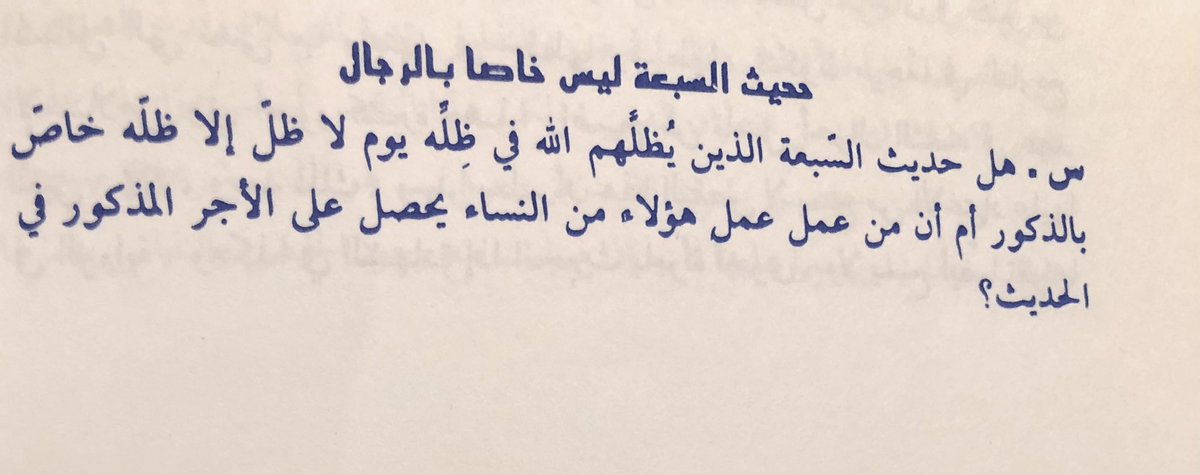 حديث السبعة ليس خاصا بالرجال
س . هل حديث السّبعة الذين يُظلَّهم الله في ظِلِّه يوم لا ظلّ إلا ظلّه خاصّ
بالذكور أم أن من عمل عمل هؤلاء من النساء يحصل على الأجر المذكور في
الحديث؟